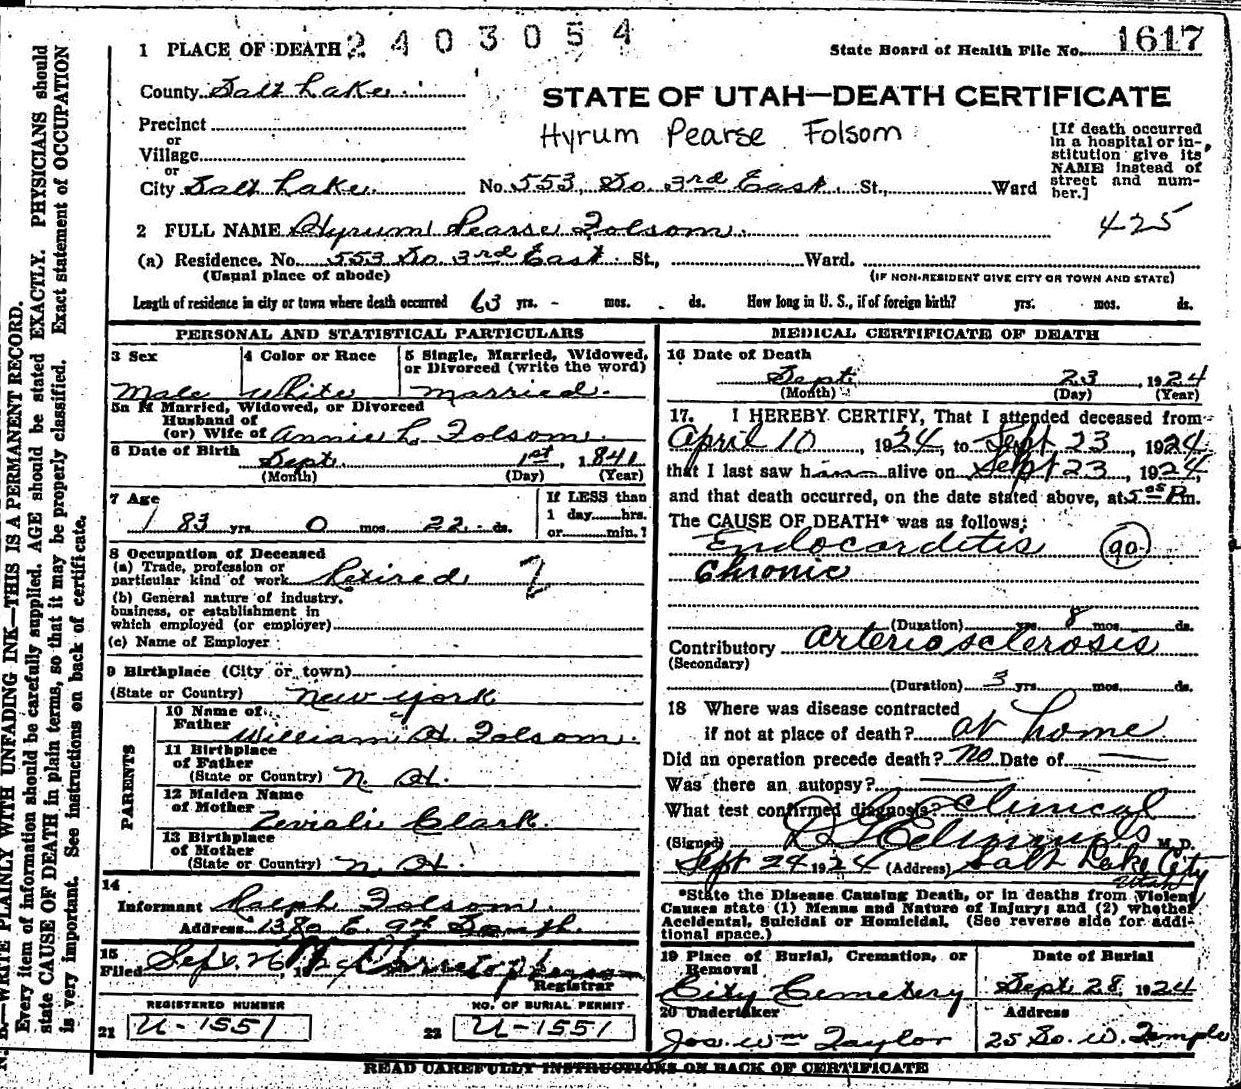 1 PLACE OF DEATH 2403054
State Board of Health File No. 1617
County Salt Lake
STATE OF UTAH—DEATH CERTIFICATE
Hyrum Pearse Folsom
Precinct
or
Village
or
City Salt Lake No. 553, So. 3rd East St., Ward
[If death occurred
in a hospital or in-
stitution give its
NAME instead of
street and num-
ber.]
425
2 FULL NAME Hyrum Pearse Folsom
(a) Residence. No. 553 So 3rd East St., Ward.
(Usual place of abode) (IF NON-RESIDENT GIVE CITY OR TOWN AND STATE)
Length of residence in city or town where death occurred 63 yrs. - mos. ds. How long in U. S., if of foreign birth? yrs. mos. ds.
PERSONAL AND STATISTICAL PARTICULARS
3 Sex
Male
4 Color or Race
White
5 Single, Married, Widowed,
or Divorced (write the word)
Married.
5a If Married, Widowed, or Divorced
Husband of
(or) Wife of Annie L. Folsom.
6 Date of Birth
Sept. 1st, 1841
(Month) (Day) (Year)
7 Age
83 yrs 0 mos 22 ds.
If LESS than
1 day......hrs.
or......min.?
8 Occupation of Deceased
(a) Trade, profession or
particular kind of work Retired 2
(b) General nature of industry,
business, or establishment in
which employed (or employer)
(c) Name of Employer
9 Birthplace (City or town)
(State or Country) New York
PARENTS
10 Name of
Father William H. Folsom.
11 Birthplace
of Father
(State or Country) N. H.
12 Maiden Name
of Mother
Clark.
13 Birthplace
of Mother
(State or Country) N. H.
14
Informant Ralph Folsom.
Address 1380 E. 9th South.
15
Filed Sept. 26
Registrar
REGISTERED NUMBER
21 U-1551
NO. OF BURIAL PERMIT
22 U-1551
MEDICAL CERTIFICATE OF DEATH
16 Date of Death
Sept. 23, 1924
(Month) (Day) (Year)
17. I HEREBY CERTIFY, That I attended deceased from
April 10, 1924, to Sept 23, 1924
that I last saw him alive on Sept 23, 1924,
and that death occurred, on the date stated above, at 5 05 P m.
The CAUSE OF DEATH* was as follows:
Endocarditis 90
Chronic
(Duration) yrs 8 mos. ds.
Contributory Arteriosclerosis
(Secondary)
(Duration) 3 yrs mos. ds.
18 Where was disease contracted
if not at place of death? at home
Did an operation precede death? No Date of
Was there an autopsy?
What test confirmed diagnosis? Clinical
(Signed) M.D.
Sept 24 1924 (Address) Salt Lake City
Utah
*State the Disease Causing Death, or in deaths from Violent
Causes state (1) Means and Nature of Injury; and (2) whether
Accidental, Suicidal or Homicidal. (See reverse side for addi-
tional space.)
19 Place of Burial, Cremation, or
Removal
City Cemetery
Date of Burial
Sept. 28, 1924
20 Undertaker
Jos. Wm Taylor
Address
25 So. W. Temple
READ CAREFULLY INSTRUCTIONS ON BACK OF CERTIFICATE
N. B.—WRITE PLAINLY WITH UNFADING INK—THIS IS A PERMANENT RECORD.
Every item of information should be carefully supplied. AGE should be stated EXACTLY. PHYSICIANS should
state CAUSE OF DEATH in plain terms, so that it may be properly classified. Exact statement of OCCUPATION
is very important. See instructions on back of certificate.